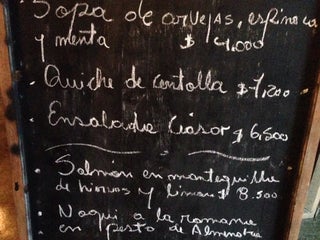 Sopa de arvejas, espinaca
y menta $ 4.000
. Quiche de centolla $ 7.200
. Ensalada César $ 6.500
. Salmón en mantequilla
de hierbas y limón $ 8.500
. Ñoqui a la romana
en pesto de Almendra